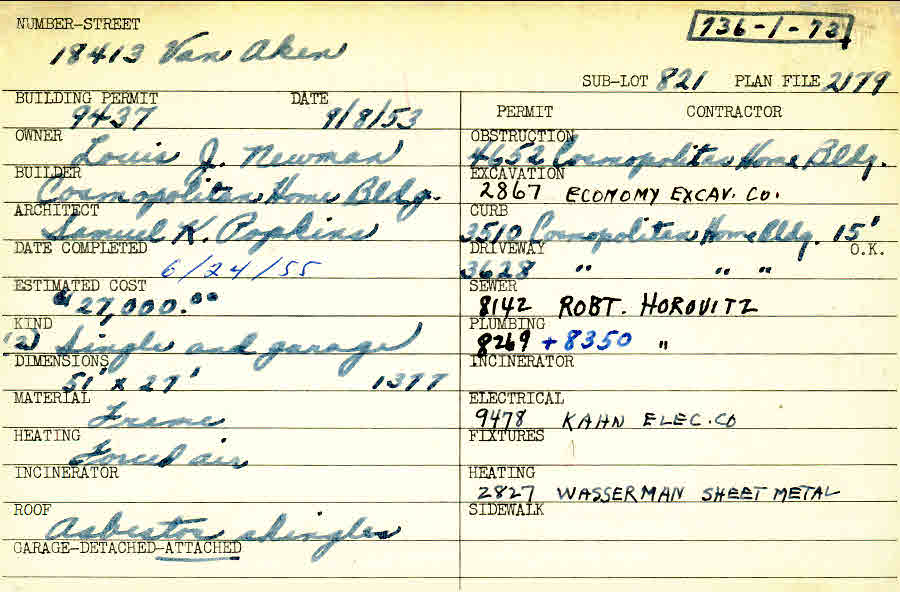 NUMBER-STREET
736-1-73
18413 Van Aken
SUB-LOT 821 PLAN FILE 2179
BUILDING PERMIT DATE
9437 9/8/53
PERMIT CONTRACTOR
OWNER
Louis J. Newman
BUILDER
Cosmopolitan Home Bldg.
ARCHITECT
Samuel K. Popkins
DATE COMPLETED
6/24/55
ESTIMATED COST
$27,000.00
KIND
(2) Single and garage
DIMENSIONS
51' x 27' 1377
MATERIAL
Frame
HEATING
Forced air
INCINERATOR
ROOF
Asbestos shingles
GARAGE-DETACHED-ATTACHED
OBSTRUCTION
4652 Cosmopolitan Home Bldg.
EXCAVATION
2867 ECONOMY EXCAV. CO.
CURB
3510 Cosmopolitan Home Bldg. 15'
DRIVEWAY O.K.
3628 " " "
SEWER
8142 ROBT. HOROVITZ
PLUMBING
8269 + 8350 "
INCINERATOR
ELECTRICAL
9478 KAHN ELEC. CO
FIXTURES
HEATING
2827 WASSERMAN SHEET METAL
SIDEWALK